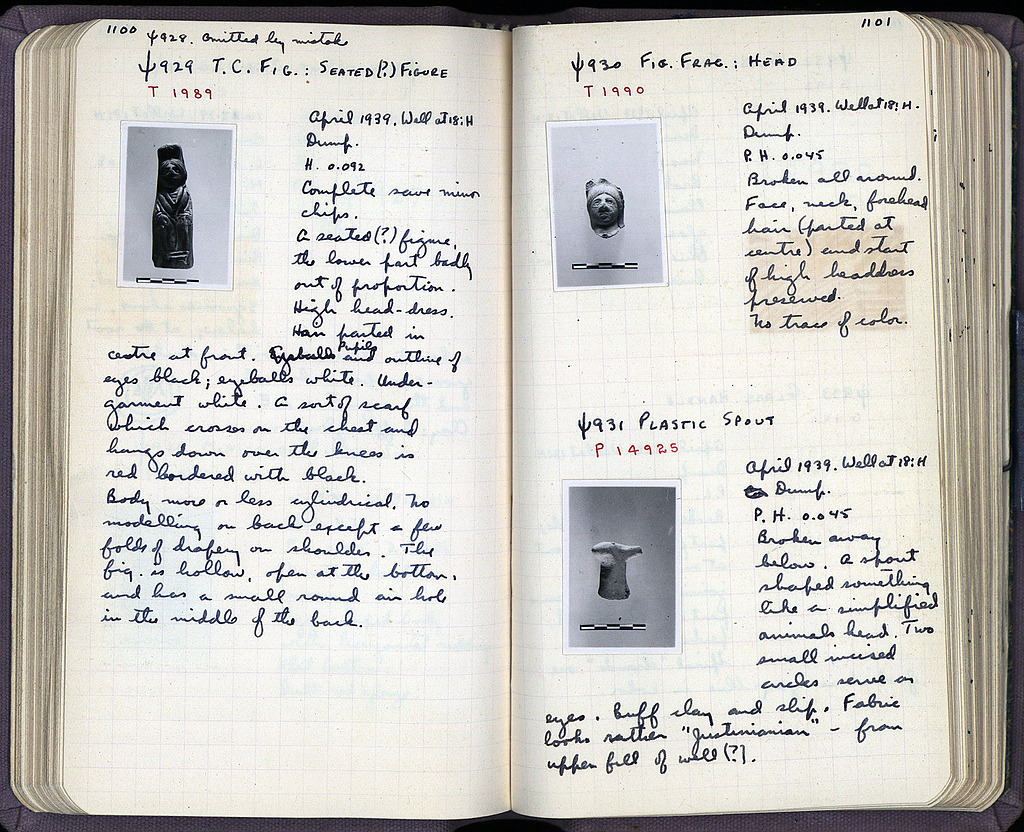 1100
ψ928. Omitted by mistake
ψ929 T.C. FIG.: SEATED(?) FIGURE
T 1989
April 1939. Well at 18:H
Dump.
H. 0.092
Complete save minor
chips.
A seated(?) figure,
the lower part badly
out of proportion.
High head-dress.
Hair parted in
centre at front. Pupils and outline of
eyes black; eyeballs white. Under-
garment white. A sort of scarf
which crosses on the chest and
hangs down over the knees is
red bordered with black.
Body more or less cylindrical. No
modelling on back except a few
folds of drapery on shoulder. The
fig. is hollow, open at the bottom,
and has a small round air hole
in the middle of the back.
1101
ψ930 FIG. FRAG.: HEAD
T 1990
April 1939. Well at 18:H.
Dump.
P.H. 0.045
Broken all around.
Face, neck, forehead
hair (parted at
centre) and start
of high headdress
preserved.
No trace of color.
ψ931 PLASTIC SPOUT
P 14925
April 1939. Well at 18:H
Dump.
P.H. 0.045
Broken away
below. A spout
shaped something
like a simplified
animals head. Two
small incised
circles serve as
eyes. Buff clay and slip. Fabric
looks rather "Justinianian" – from
upper fill of well(?).